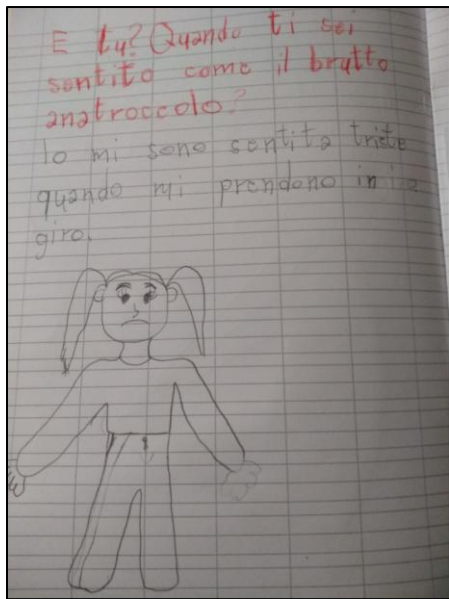 E tu? Quando ti sei
sentito come il brutto
anatroccolo?
Io mi sono sentita triste
quando mi prendono in
giro.